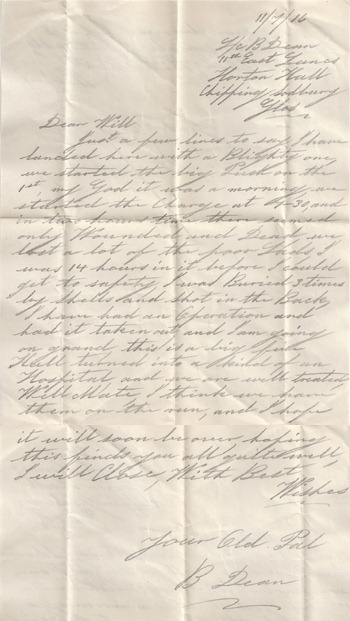 11/7/16
L/c B Dean
11th East Lancs
Horton Hall
Chipping Sodbury
Glos
Dear Will
Just a few lines to say I have
landed here with a Blighty one
we started the big Push on the
1st, my God it was a morning, we
started the Charge at 7-30 and
in two hours time there seemed
only Wounded and Dead we
lost a lot of the poor Lads, I
was 14 hours in it before I could
get to safety, I was Buried 3 times
by Shells and shot in the Back
I have had an Operation and
had it taken out and I am going
on grand, this is a big fine
Hall turned into a kind of an
Hospital and we are well treated
Will Mate, I think we have
them on the run, and I hope
it will soon be over, hoping
this finds you all quite well,
I will Close, With Best
Wishes
Your Old Pal
B Dean